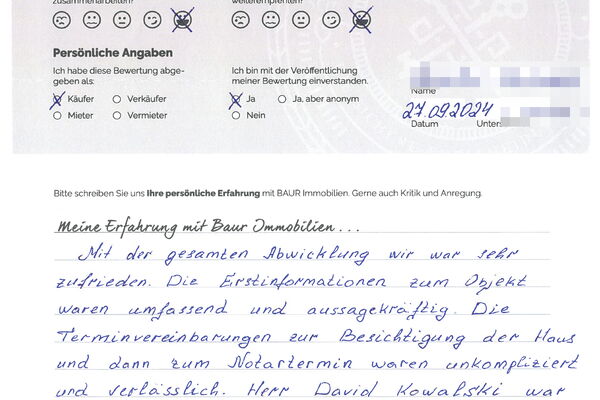 zusammenarbeiten?
weiterempfehlen?
Persönliche Angaben
Ich habe diese Bewertung abge-
geben als:
Käufer
Verkäufer
Mieter
Vermieter
Ich bin mit der Veröffentlichung
meiner Bewertung einverstanden.
Ja
Ja, aber anonym
Nein
Name
27.09.2024
Datum
Unters
Bitte schreiben Sie uns Ihre persönliche Erfahrung mit BAUR Immobilien. Gerne auch Kritik und Anregung.
Meine Erfahrung mit Baur Immobilien ...
Mit der gesamten Abwicklung wir war sehr
zufrieden. Die Erstinformationen zum Objekt
waren umfassend und aussagekräftig. Die
Terminvereinbarungen zur Besichtigung der Haus
und dann zum Notartermin waren unkompliziert
und verlässlich. Herr David Kowalski war